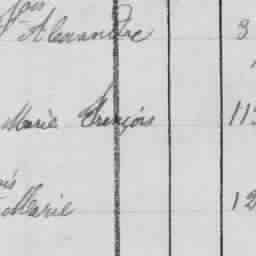 Alexandre 3
Marie François 113
Marie 12